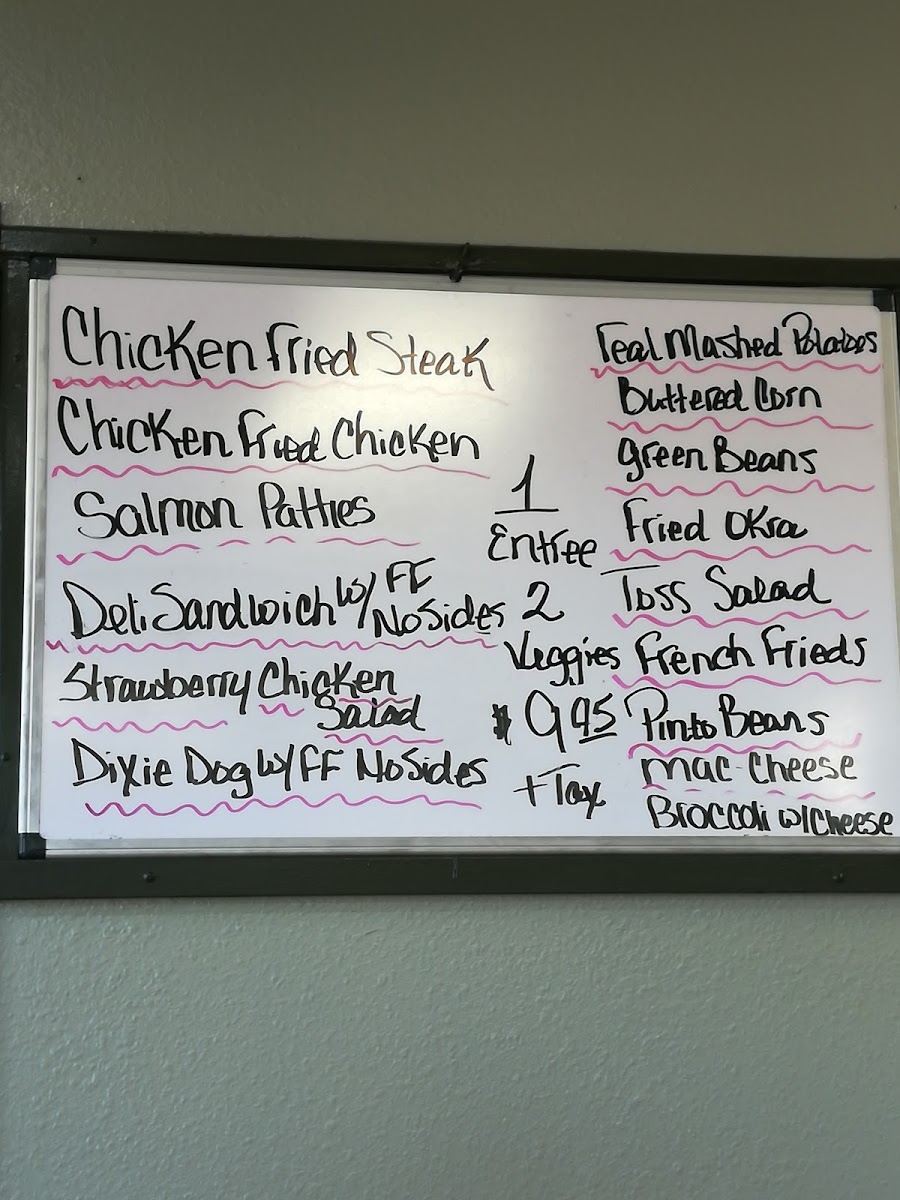 Chicken Fried Steak
Chicken Fried Chicken
Salmon Patties
Deli Sandwich w/ FF
No Sides
Strawberry Chicken
Salad
Dixie Dog w/ FF No Sides
1
Entree
2
Veggies
$ 9.95
+ Tax
real Mashed Potatoes
Buttered Corn
green Beans
Fried Okra
Toss Salad
French Frieds
Pinto Beans
mac-cheese
Broccoli w/cheese